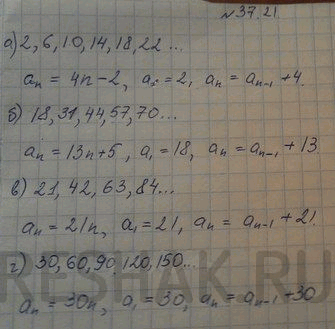 №37.21.
а) 2, 6, 10, 14, 18, 22 ...
aₙ = 4n-2, a₁ = 2, aₙ = aₙ₋₁ + 4.
б) 18, 31, 44, 57, 70...
aₙ = 13n+5, a₁ = 18, aₙ = aₙ₋₁ + 13.
в) 21, 42, 63, 84...
aₙ = 21n, a₁ = 21, aₙ = aₙ₋₁ + 21.
г) 30, 60, 90, 120, 150...
aₙ = 30n, a₁ = 30, aₙ = aₙ₋₁ + 30
RESHAK.RU